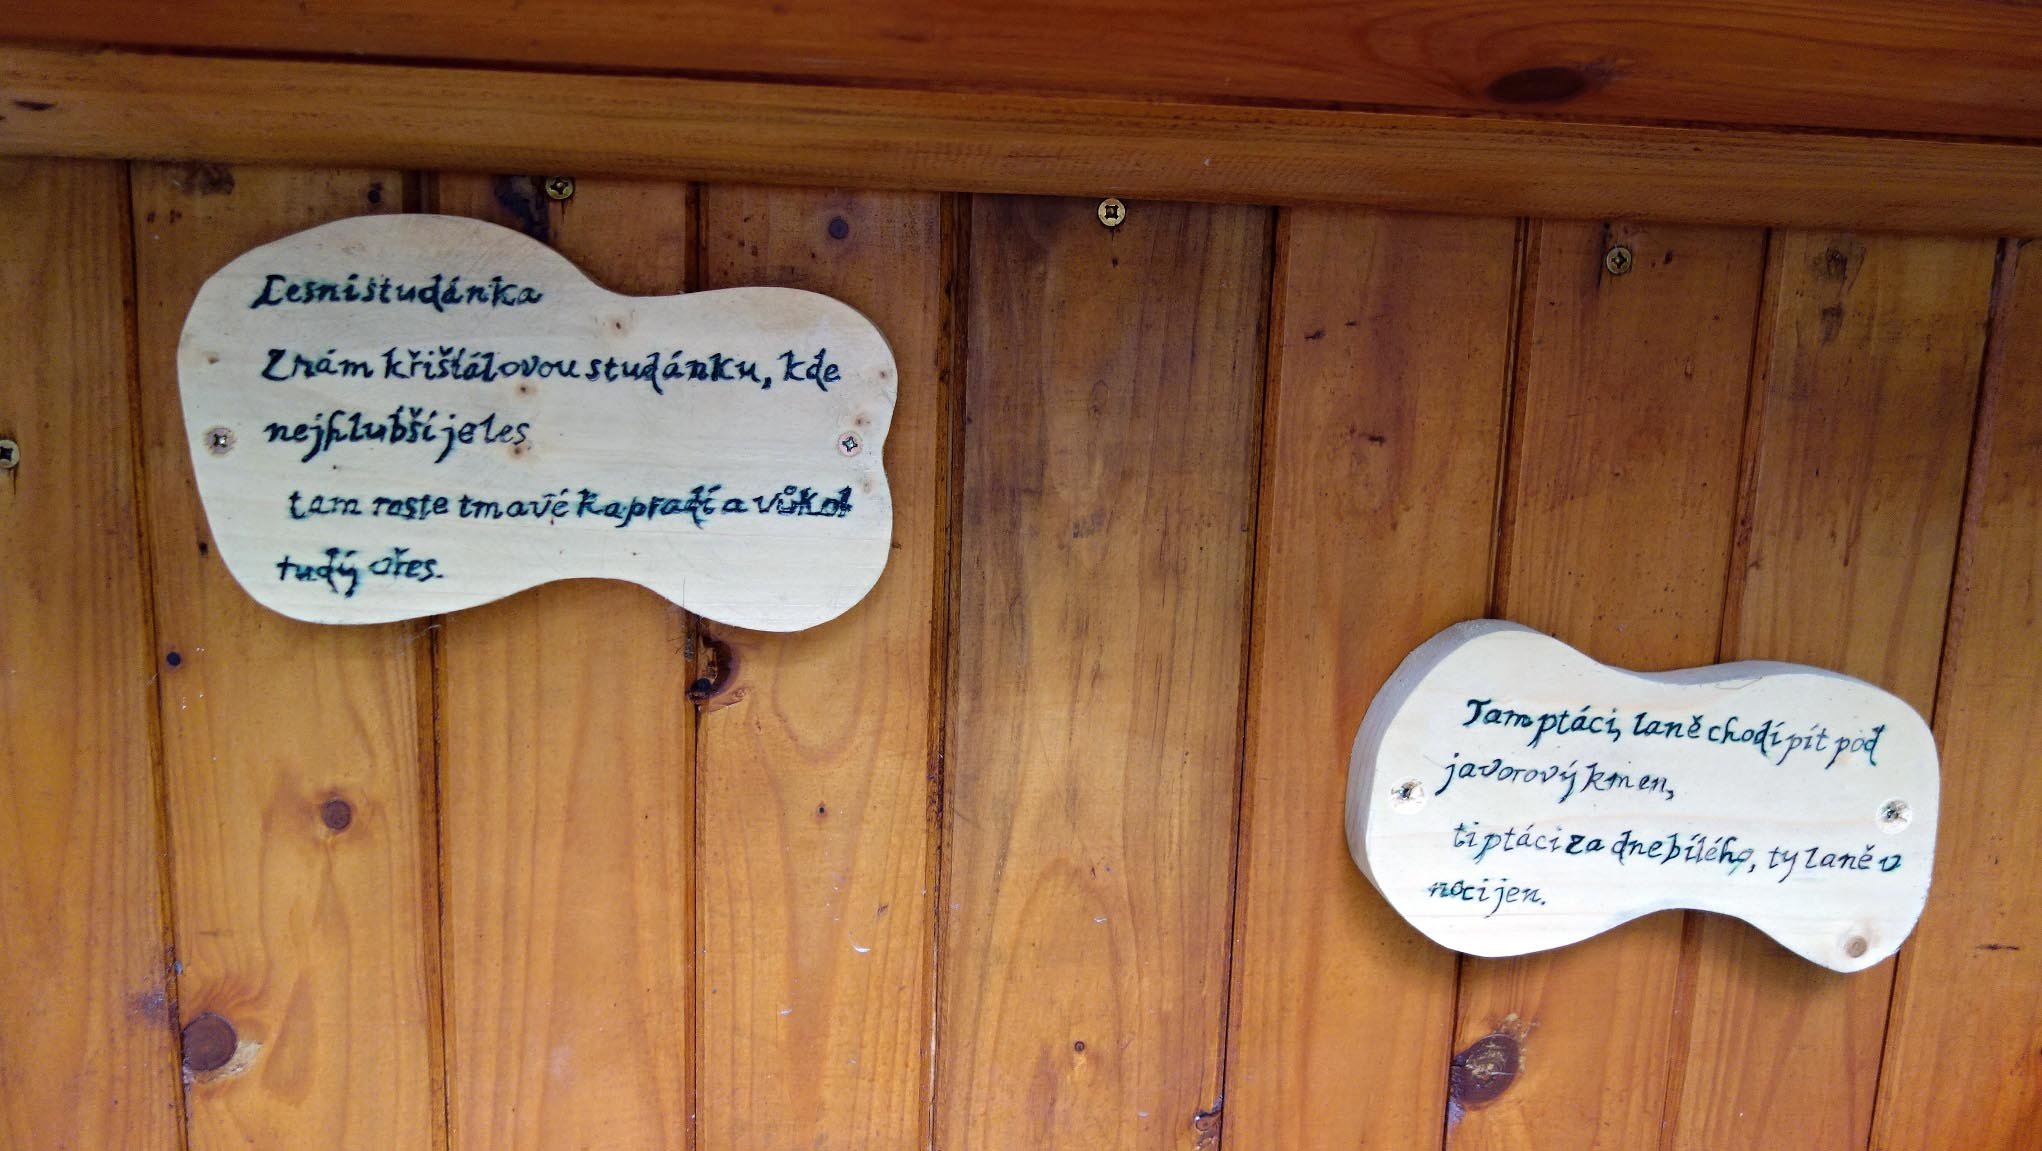 Lesní studánka
Znám křišťálovou studánku, kde
nejhlubší je les
tam roste tmavé kapradí a vůkol
rudý vřes.
Tam ptáci, laně chodí pít pod
javorový kmen,
ti ptáci za dne bílého, ty laně v
noci jen.